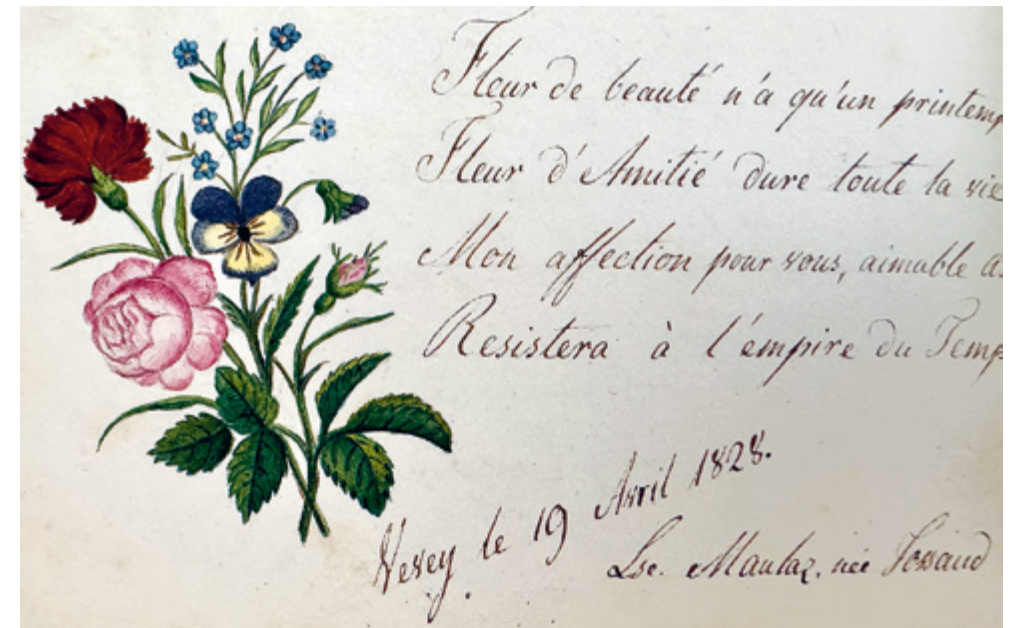 Fleur de beauté n'a qu'un printemp
Fleur d'Amitié dure toute la vie
Mon affection pour vous, aimable A.
Resistera à l'empire du Temp
Vevey le 19 Avril 1828.
Lse. Maulaz, née